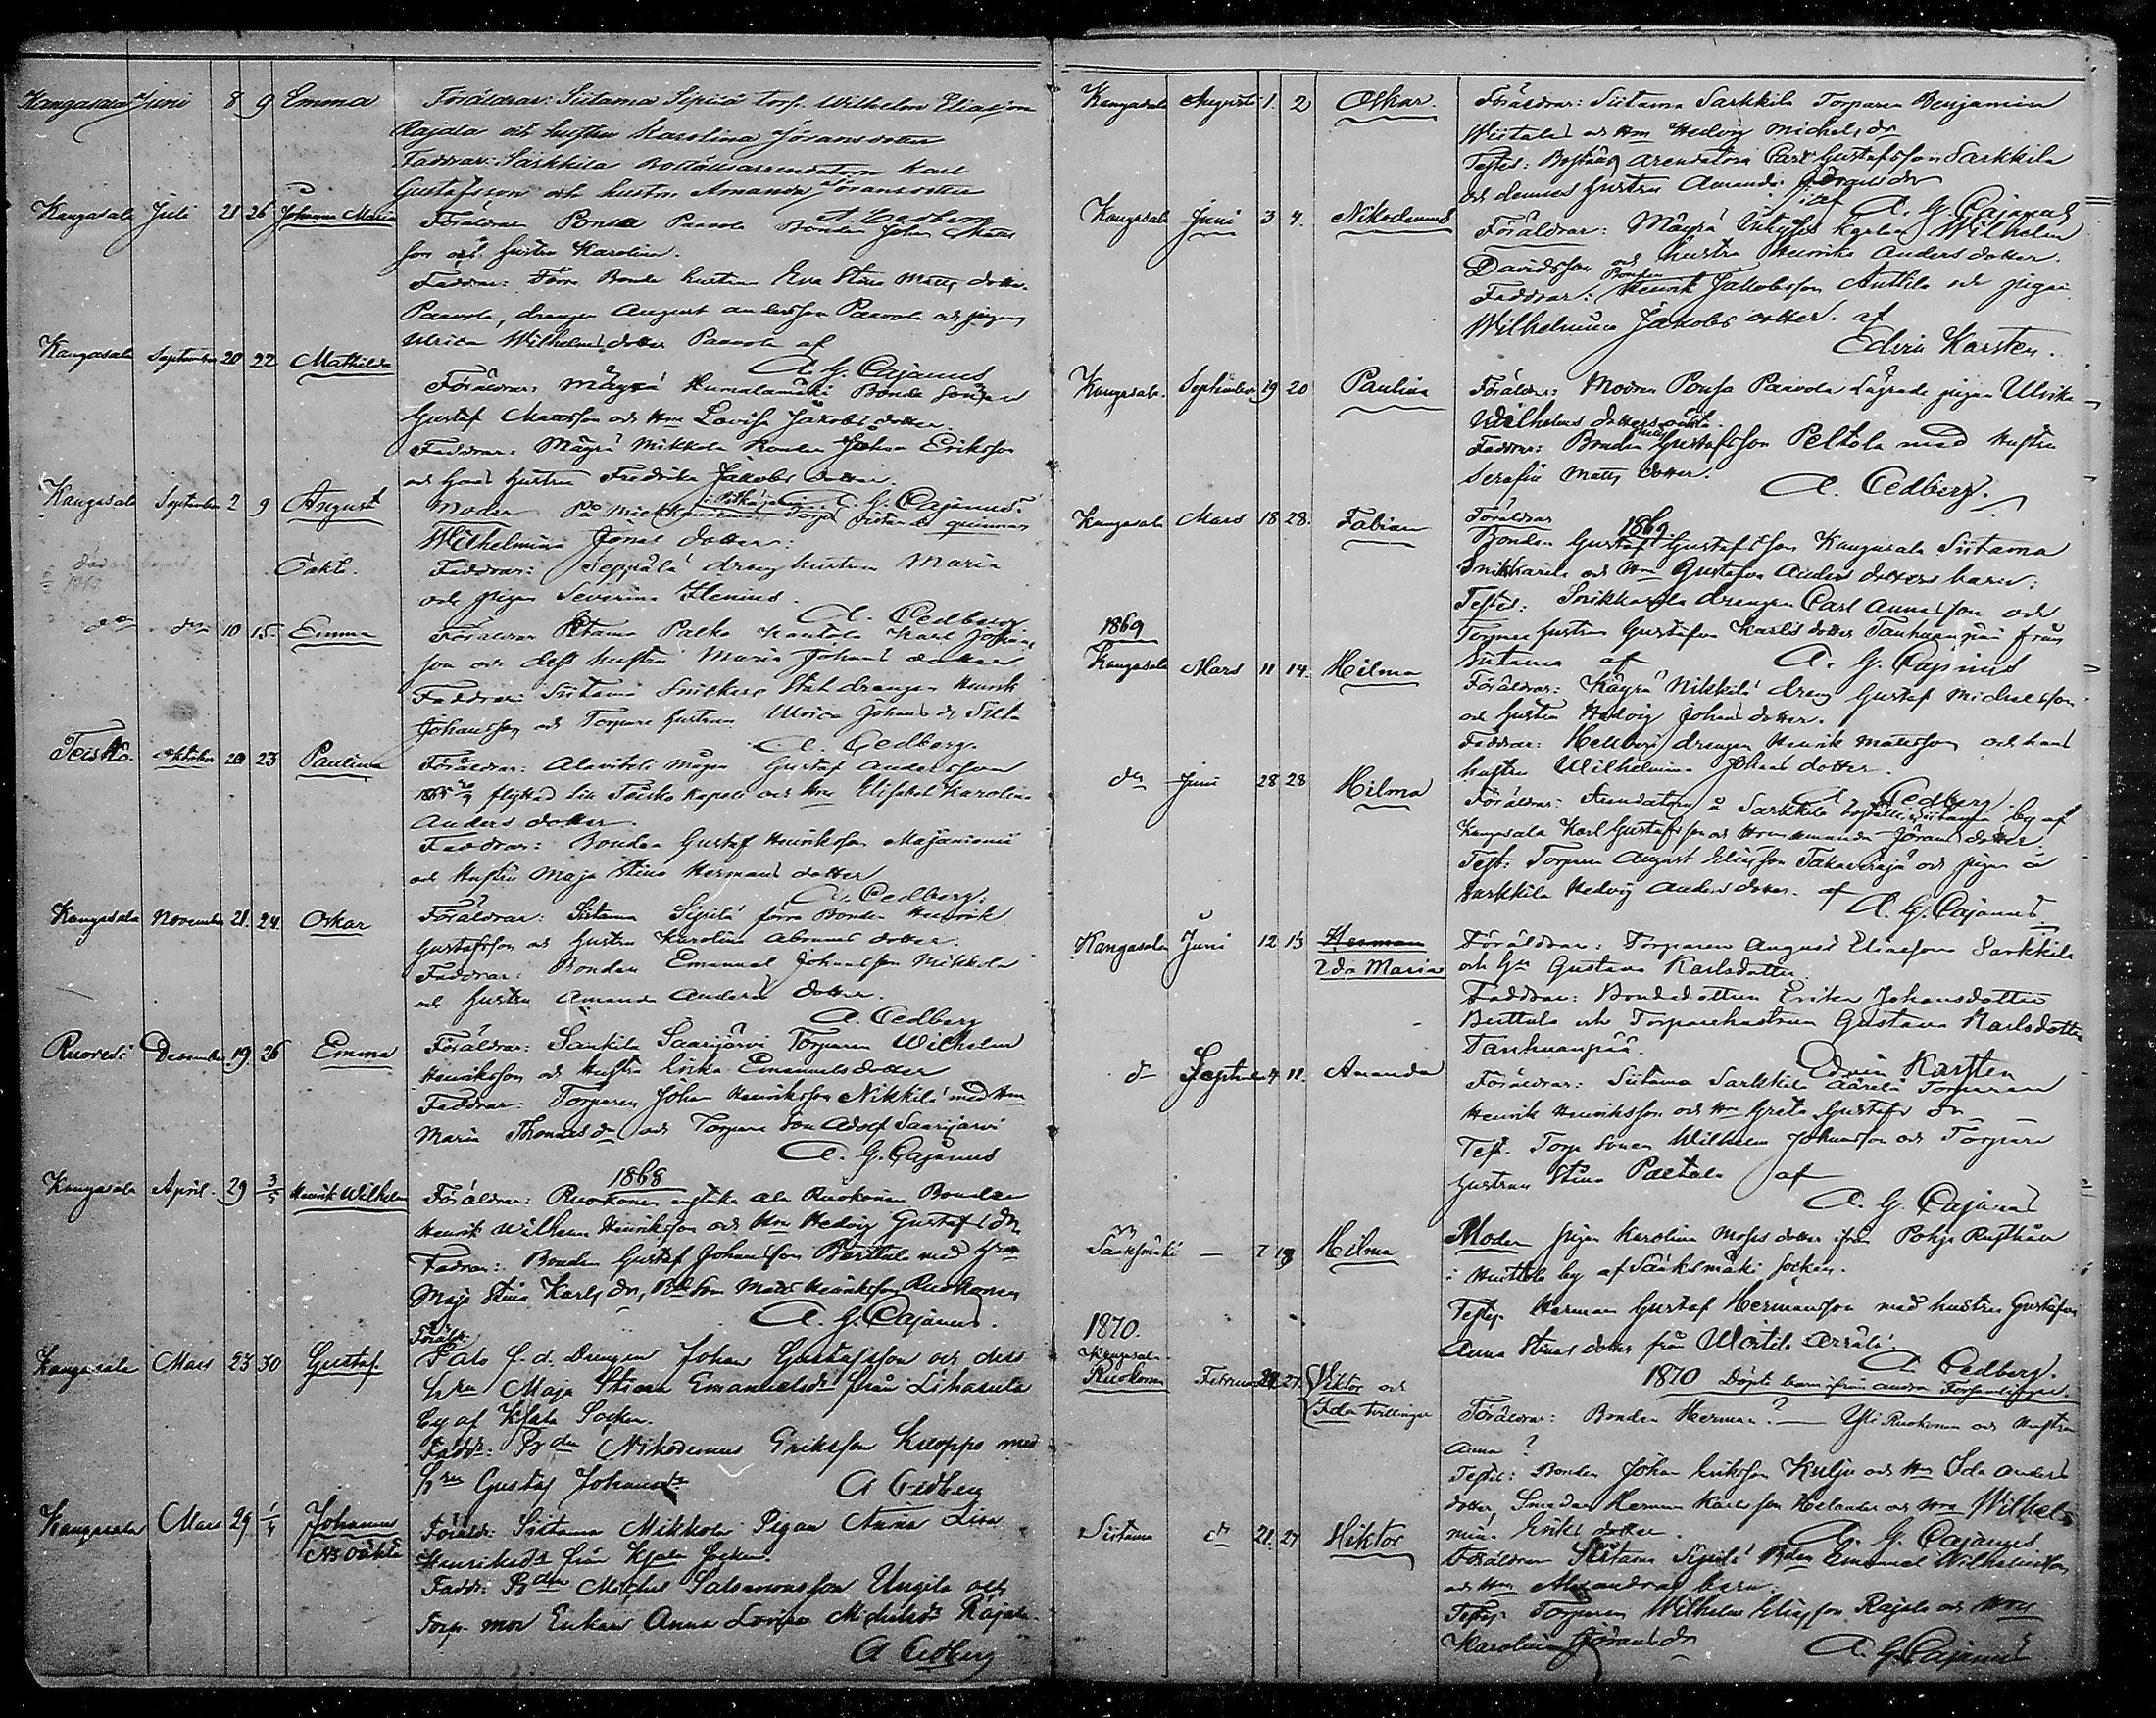 Kangasala Juni 8 9 Emma Föräldrar: Siitama Sipilä torp. Wilhelm Eliasson
Rajala och hustru Karolina Jöransdotter
Faddrar: Sarkkila Boställsarrendatorn Karl
Gustafsson och hustru Amanda Jöransdotter
Kangasala Juli 21 26 Johanna Maria Föräldrar Ponsa Paavola Bonden Johan Matts
son och hustru Karolina.
Faddrar: Förre Bonde hustrun Eva Stina Matts dotter
Paavola, drengen August Andersson Paavola och pigan
Ulrica Wilhelms dotter Paavola af
A. G. Cajanus
Kangasala September 20 22 Mathilda Föräldrar: Mäyrä Humalamäki Bonde Sonen
Gustaf Mattsson och Hm Lovisa Jakobs dotter.
Faddrar: Mäyrä Mikkola Bonden Johan Eriksson
och hans hustru Fredrika Jakobs dotter.
A. G. Cajanus.
Kangasala September 2 9 August Moder På Torp qvinnan
Wilhelmina Jonas dotter:
Oäkta. Faddrar: Seppälä dräng hustrun Maria
och pigan Severina Henius.
A. Cedberg
do do 10 15. Emma Föräldrar Siitama Palko Kantola Karl Johans
son och dess hustru Maria Johans dotter
Faddrar Siitama Snickers Stat drengen Henrik
Johansson och Torpare hustrun Ulrica Johans dr
A. Cedberg.
Teisko. Oktober 20 23 Paulina Föräldrar: Alavitali mågen Gustaf Andersson
1865 flyttad till Teisko Kapell och Hm Elisabet Karolina
Anders dotter.
Faddrar: Bonden Gustaf Henriksson Majaniemi
och Hustru Maja Stina Hermans dotter
A. Cedberg.
Kangasala November 21. 24. Oskar Föräldrar: Siitama Sipilä förra Bonden Henrik
Gustafsson och hustru Karolina Abrams dotter.
Faddrar: Bonden Emanuel Johansson Mikkola
och hustru Amanda Anders dotter.
A. Cedberg
Ruovesi December 19. 26 Emma Föräldrar: Saarijärvi Torparen Wilhelm
Henriksson och Hustru Erika Emanuelsdotter
Faddrar: Torparen Johan Henriksson Nikkilä med Hm
Maria Thomas dr och Torpare Son Adolf Saarijärvi
A. G. Cajanus
1868
Kangasala April. 29 3/5 Henrik Wilhelm Föräldrar: Ruokonen Ala Ruokonen Bonden
Henrik Wilhelm Henriksson och Hm Hedvig Gustafs dr
Fadrar: Bonden Gustaf Johansson Perttula med Hm
Maja Stina Karls dr, Bde Son Matts Henriksson Ruokonen
A. G. Cajanus.
Kangasala Mars 23 30 Gustaf Föräldr:
Palo f. d. Drengen Johan Gustafsson och dess
hru Maja Stiina Emanuelsdr från Liharula
by af Kjala Socken.
Faddr: Bden Nikodemus Eriksson Kuoppa med
hru Gustaf Johansdr A Cedberg
Kangasala Mars 29. 1/4 Johannes
NB Oäkta Föräldr: Siitama Mikkola Pigan Anna Lisa
Henriksdr från Kjala Socken.
Faddr: Bden Michel Salomonsson Ungila och
Torp. mor Enkan Anna Lovisa Michelsdr Rajala
A Cedberg
Kangasala Augusti 1. 2 Oskar. Föräldrar: Siitama Sarkkila Torparen Benjamin
Wiitala och Hm Hedvig Michels dr
Testes: Boställs arendatorn Carl Gustafsson Sarkkila
och dennes hustru Amanda Görans dr
A. G. Cajanus
Kangasala Juni 3 4. Nikodemus Föräldrar: Mäyrä Karlen Wilhelm
Davidsson och hustru Henrika Anders dotter.
Faddrar: Bonden Henrik Jakobsson Anttila och pigan
Wilhelmina Jakobs dotter. af
Edvin Karsten.
Kangasala. September 19 20 Paulina Föräldrar: Modren Ponsa Paavola Lägrade pigan Ulrika
Wilhelms dotters oäkta.
Faddrar: Bonden Gustafsson Peltola med Hustru
Serafin Matts dotter.
A. Cedberg.
Kangasala Mars 18 28. Fabian Föräldrar 1869
Bonden Gustaf Gustafsson Kangasala Siitama
Snikkarila och Hm Gustafva Anders dotters barn:
Testes: Snikkarila drengen Carl Annasson och
Torpare hustrun Gustafva Karls dotter Tanhuanpää från
Siitama af A. G. Cajanus
1869
Kangasala Mars 11 14. Hilma Föräldrar: Käyrä Nikkilä dreng Gustaf Michaelsson
och hustru Hedvig Johans dotter.
Faddrar: drengen Henrik Mattsson och hans
hustru Wilhelmina Johans dotter.
A. Cedberg
do Juni 28 28 Hilma Föräldrar: Arrendatorn å Sarkkila boställe i Siitama by af
Kangasala Karl Gustafsson och Hm Amanda Jörans dotter.
Test: Torparen August Eliasson Takaveräjä och pigan å
Sarkkila Hedvig Anders dotter. af
A. G. Cajanus.
Kangasala Juni 12 13 Herman
Ida Maria Föräldrar: Torparen August Eliasson Sarkkila
och Hu Gustava Karlsdotter
Faddrar: Bondedottren Erika Johansdotter
Perttula och Torparehustrun Gustava Karlsdotter
Tanhuanpää.
Edvin Karsten
do September 4 11. Amanda Föräldrar: Siitama Sarkkila Torparen
Henrik Henriksson och Hm Greta Gustafs dr
Test. Torp Sonen Wilhelm Johansson och Torpare
hustrun Stina Paltola af
A. G. Cajanus
Sääksmäki — 7 13 Hilma Moder pigan Karolina Moses dotter ifrån Pohja Rusthåll
i Huittula by af Sääksmäki socken.
Testes Herman Gustaf Hermansson med hustru Gustafva
Anna Stinas dotter från
A. Cedberg.
1870 Döpte barn ifrån andra Församlingar
1870.
Kangasala
Ruokonen Februari 20 27. Viktor och
Ida tvillingar Föräldrar: Bonden Herman? — Yli Ruokonen och Hustru
Anna?
Testes: Bonden Johan Eriksson Kulju och Hm Ida Anders
dotter, Smeden Herman Karlsson Helander och Hm Wilhel
mina Eriks dotter.
A. G. Cajanus
Siitama do 21. 27 Hiktor Föräldrar Siitama Sipilä Bden Emanuel Wilhelmsson
och Hm Alexandras barn.
Testes Torparen Wilhelm Eliasson Rajala och Hm
Karolina Jörans dr A. G. Cajanus